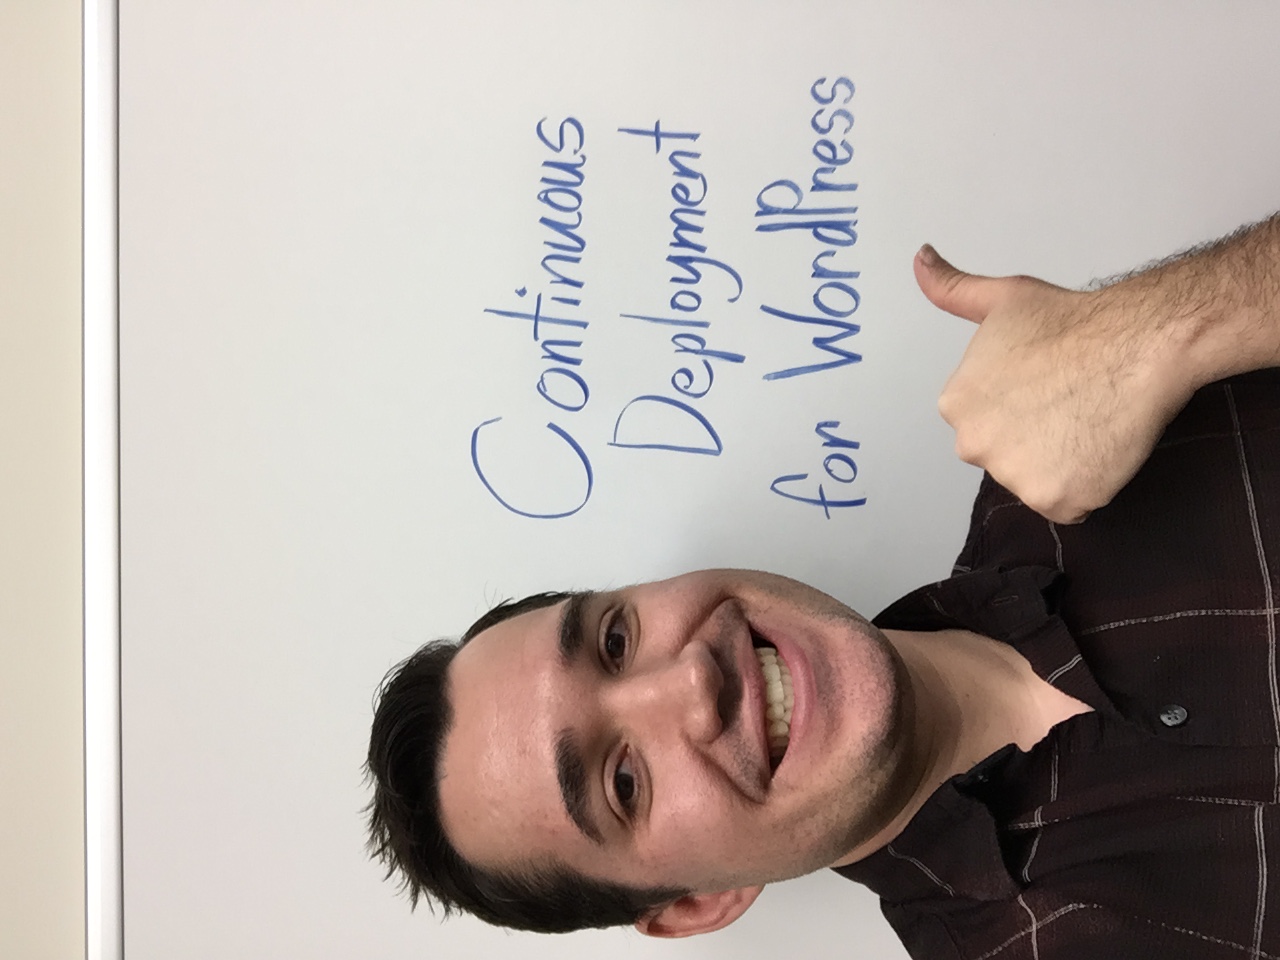 Continuous
Deployment
for WordPress